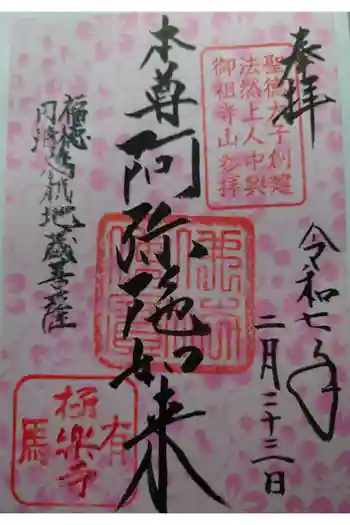 奉拝
令和七年
二月二十三日
聖徳太子創建
法然上人中興
御祖寺山参拝
本尊阿弥陀如来
福徳
円満
地蔵菩薩
有馬
極楽寺